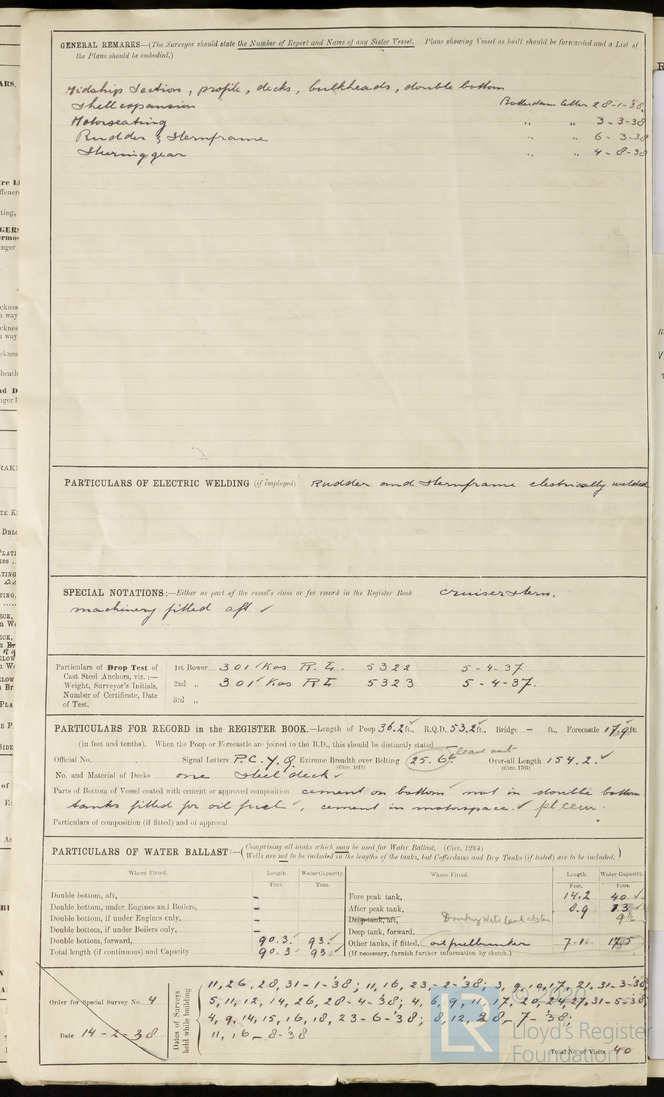 GENERAL REMARKS—(The Surveyor should state the Number of Report and Name of any Sister Vessel. Plans showing Vessel as built should be forwarded and a List of
the Plans should be embodied.)
Midship Section, profile, decks, bulkheads, double bottom
Shell expansion Rotterdam letter 28-1-'38
Motorseating " " 3-3-38
Rudder & Sternframe " " 6-3-38
Steering gear " " 4-8-38
PARTICULARS OF ELECTRIC WELDING (if employed) Rudder and Sternframe electrically welded
SPECIAL NOTATIONS:—Either as part of the vessel's class or for record in the Register Book cruiser stern.
machinery fitted aft ✓
Particulars of Drop Test of
Cast Steel Anchors, viz.:—
Weight, Surveyor's Initials,
Number of Certificate, Date
of Test.
1st Bower 301 Kos 5322 5-4-37
2nd „ 301 Kos 5323 5-4-37.
3rd „
PARTICULARS FOR RECORD in the REGISTER BOOK.—Length of Poop 36.2 ft., R.Q.D. 53.2 ft., Bridge – ft., Forecastle 17.9 ft.
(in feet and tenths). When the Poop or Forecastle are joined to the B.D., this should be distinctly stated
Official No. Signal Letters P.C.Y.Q. Extreme Breadth over Belting 25.6 Over-all Length 154.2 ✓
(Circ. 1611) (Circ. 1703)
No. and Material of Decks one steel deck ✓
Parts of Bottom of Vessel coated with cement or approved composition cement on bottom not in double bottom
tanks fitted for oil fuel, cement in motorspace. ✓ pt cem.
Particulars of composition (if fitted) and of approval
PARTICULARS OF WATER BALLAST:—(Comprising all tanks which may be used for Water Ballast. (Circ. 1284)
Wells are not to be included in the lengths of the tanks, but Cofferdams and Dry Tanks (if tested) are to be included.)
Where Fitted. Length. Water Capacity. Where Fitted. Length. Water Capacity.
Feet. Tons. Feet. Tons.
Double bottom, aft, – Fore peak tank, 14.2 40
Double bottom, under Engines and Boilers, – After peak tank, 8.9
Double bottom, if under Engines only, – Deep tank, aft,
Double bottom, if under Boilers only, – Deep tank, forward,
Double bottom, forward, 90.3 93 Other tanks, if fitted, oil fuelbunker
Total length (if continuous) and Capacity 90.3 93 (If necessary, furnish further information by sketch.)
Order for Special Survey No. 4
Date 14-2-38
Dates of Surveys
held while building
11, 26, 28, 31-1-'38; 11, 16, 23, -2-'38; 3, 9, 10, 17, 21, 31-3-38
5, 11, 12, 14, 26, 28-4-'38; 4, 6, 9, 11, 17, 20, 24, 27, 31-5-38
4, 9, 14, 15, 16, 18, 23-6-'38; 8, 12, 28-7-'38;
11, 16-8-38
Total No. of Visits 40
© 2020
LR
Lloyd's Register
Foundation